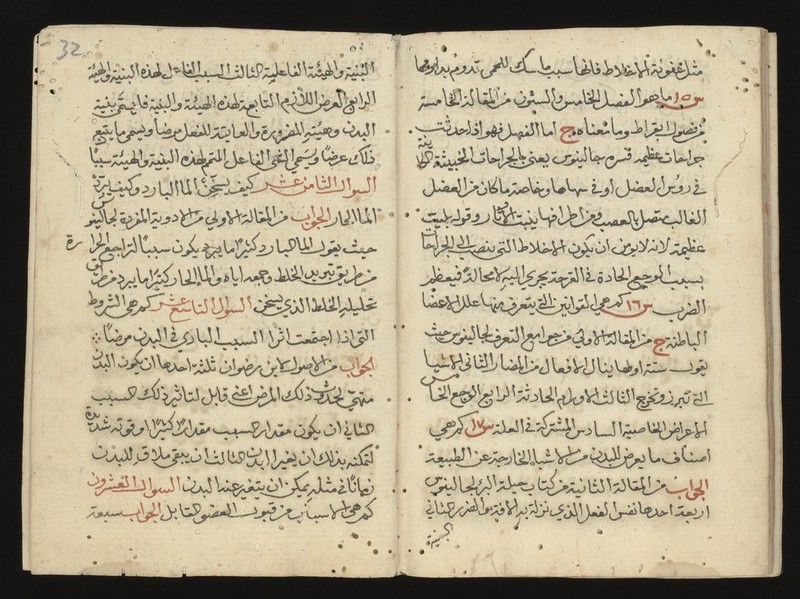 مثل عفونة الاخلاط فانها سبب ماسك للحمى تدوم بدوامها
س ١٥ ما هو الفصل الخامس والستون من المقالة الخامسة
من فصول ابقراط وما معناه ج اما الفصل فهو اذا حدثت
جراحات عظيمه فسره جالينوس يعنى بالجراحات الخبيثة
في رؤس العضل او في منتهاها وبخاصة ما كان من العضل
الغالب متصل بالعصب
عظيمة لانه لا يومن ان يكون الاخلاط التي تنصب الى الجراحات
بسبب الوجع الحادث في القرحة يجرى اليه لا محالة فيعظم
الضرب س ١٦ كم هي القوانين التي يتعرف منها علل الاعضا
الباطنه ج من المقالة الاولى من جوامع التعرف لجالينوس حيث
يقول ستة اولها ينال الافعال من المضار الثاني الاشيا
التي تبرز وتخرج الثالث الاورام الحادثة الرابع الوجع الخامس
الاعراض الخاصية السادس المشتركة في العلة س ١٧ كم هي
اصناف ما يعرض للبدن من الاشياء الخارجة عن الطبيعة
الجواب من المقالة الثانية من كتاب حيلة البرء لجالينوس
اربعة احدها نفس الفعل الذي نزلة به الافة والضرر الثاني
البنية
32
البنية والهيئة الفاعلية الثالث السبب الفاعل لهذه البنية والهيئة
الرابع العرض اللازم التابع لهذه الهيئة والبنية فايسمى بنية
البدن وهيئته المضرورة والعايقة للفعل مرضا ويسمى ما يتبع
ذلك عرضا ويسمى الشي الفاعل المتمم لهذه البنية والهيئة سببا
السوال الثامن عشر كيف يسخن الما البارد وكيف يبرد
الما الحار الجواب من المقالة الاولى من الادوية المفردة لجالينوس
حيث يقول الما البارد كثيرا ما يبرد يكون سببا لتراجع الحرارة
من طريق تبريد الخلط وجمعه اياه والما الحار كثيرا ما يبرد من طريق
تحليله الخلط الذي يسخن السوال التاسع عشر كم هي الشروط
التي اذا اجتمعت اثر السبب البادي في البدن مرضا
الجواب من الاصول لابن رضوان ثلثة احدها ان يكون البدن
متهيئ لحدوث ذلك المرض اعني قابل لتاثير ذلك السبب
الثاني ان يكون مقدار السبب مقدارا كثيرا او قوته شديدة
لتمكنه بذلك ان يغير البدن الثالث ان يبقى ملاق للبدن
زمانا في مثله يمكن ان يتغير عند البدن السوال العشرون
كم هي الاسباب من قبول العضو القابل الجواب سبعة